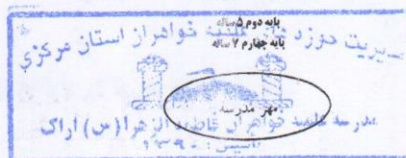 پایه دوم ۵ساله
پایه چهارم ۷ساله
مدیریت حوزه های علمیه خواهران استان مرکزی
مهر مدرسه
مدرسه علمیه خواهران فاطمة الزهرا (س) اراک
تاسیس: ۱۳۹۰